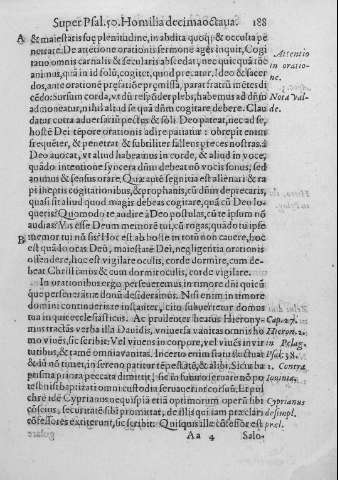 Super Psal. 50. Homilia decimaoctaua. 188
A & maiestatis suę plenitudine, in abdita quoq; & occulta pe
netrate. De attentione orationis sermone agẽs inquit, Cogi
tatio omnis carnalis & secularis abscedat, nec quicquã tũc
animus, quã id solũ cogitet, quod precatur. Ideo & sacer
dos, ante orationẽ prefatione pręmissa, parat fratrũ mẽtes di
cẽdo: Sursum corda, vt dũ respõdet plebs, habemus ad dñm
admoneatur, nihil aliud se quã dñm cogitare debere. Clau
datur cõtra aduersariũ pectus & soli Deo pateat, nec ad se,
hostẽ Dei tẽpore orationis adire patiatur: obrepit enim
frequẽter, & penetrat & subtiliter fallens preces nostras à
Deo auocat, vt aliud habeamus in corde, & aliud in voce,
quãdo intentione syncera dñm debeat nõ vocis sonus, sed
animus & sensus orare. Quæ autẽ segnitia est alienari & ra
pi ineptis cogitationibus, & prophanis, cũ dñm deprecaris,
quasi sit aliud quod magis debeas cogitare, quã cũ Deo lo
queris? Quomodo te audire à Deo postulas, cũ te ipsum nõ
audias? Vis esse Deum memorẽ tui, cũ rogas, quãdo tu ipse
B memor tui nõ sis? Hoc est ab hoste in totũ nõ cauere, hoc
est quãdo oras Deũ, maiestatẽ Dei, negligentia orationis
offendere, hoc est vigilare oculis, corde dormire, cum de-
beat Christianus & cum dormit oculis, corde vigilare.
In orationibus ergo perseueremus in timore dñi qui cũ
que perseuerãtiæ donũ desideramus. Nisi enim in timore
domini continderitte instanter, cito subuertetur domus
tua inquit ecclesiasticus. Ac prudenter beatus Hierony-
mus tractãs verba illa Dauidis, vniuersa vanitas omnis ho
mo viuẽs, sic scribit: Vel viuens in corpore, vel viuẽs in vir
tutibus, & tamẽ omnia vanitas. Incerto enim statu fluctuat
& dũ nõ timet, in sereno patitur tẽpestatẽ, & alibi. Sicut ba
ptisma priora peccata dimittit, sic in futurũ seruare nõ po
test nisi baptizati omni custodia seruauerint cor suũ. Et pul
chrè idẽ Cyprianus nequispiã etiã optimorum operũ sibi
cõscius, securitatẽ sibi promittat, de illis qui iam pręclari
cõfessores extiterunt, sic scribit: Quisquis ille cõfessor est
Aa 4 Salo-
Attentio
in oratio-
ne.
Nota Val-
de.
Cap. 27.
Hieron.
in Pelag.
Psal. 38.
1. Contra
Iouinia.
Cyprianus
de simpl.
præl.